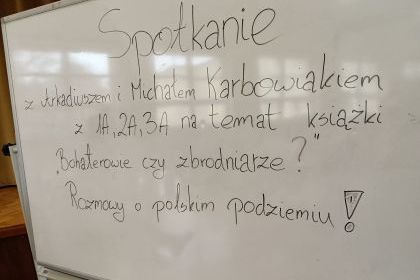 Spotkanie
z Arkadiuszem i Michałem Karbowiakiem
z 1A, 2A, 3A na temat książki
„Bohaterowie czy zbrodniarze?"
Rozmowy o polskim podziemiu!